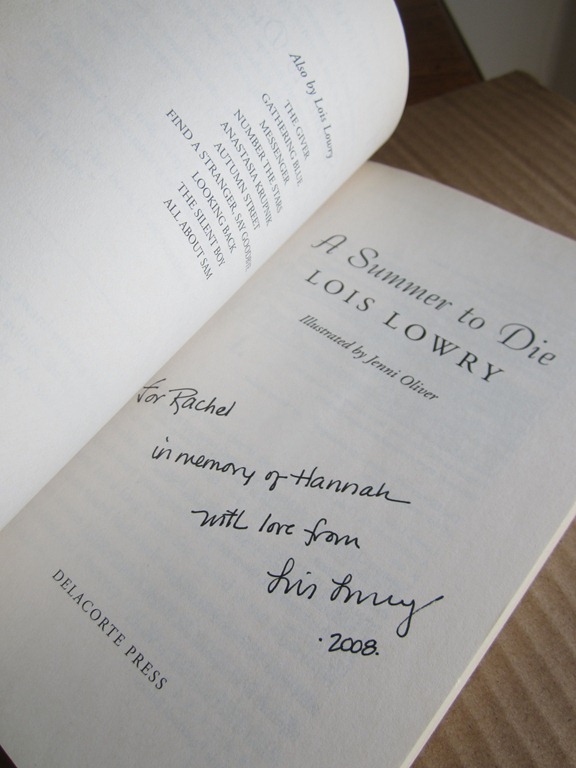 Also by Lois Lowry
THE GIVER
GATHERING BLUE
MESSENGER
NUMBER THE STARS
ANASTASIA KRUPNIK
AUTUMN STREET
FIND A STRANGER, SAY GOODBYE
LOOKING BACK
THE SILENT BOY
ALL ABOUT SAM
A Summer to Die
LOIS LOWRY
Illustrated by Jenni Oliver
for Rachel
in memory of Hannah
with love from
Lois Lowry
·2008.
DELACORTE PRESS